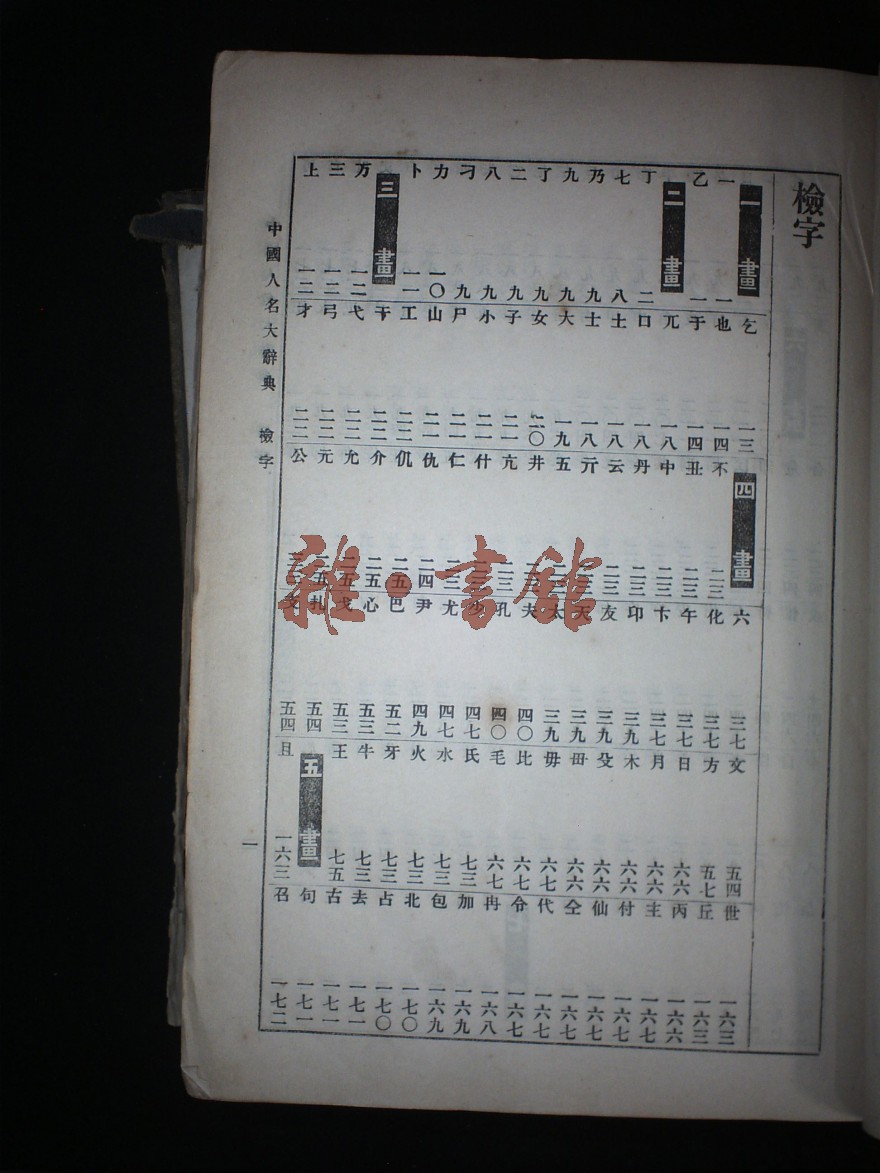 檢字
一畫
一 一
乙 一
二畫
丁 二
七 八
乃 九
九 九
了 九
二 九
八 九
刁 九
力 一〇
卜 一一
三畫
万 一二
三 一二
上 一二
乞 一三
也 一四
于 一四
兀 一八
口 一八
土 一八
士 一八
大 一九
女 二〇
子 二一
小 二一
尸 二一
山 二一
工 二二
干 二二
弋 二二
弓 二二
才 二二
四畫
不 二三
丑 二三
中 二三
丹 二三
云 二三
亓
五
井
亢 二三
什
仁 二三
仇 二四
仉 二五
介 二五
允 二五
元
公
六 三七
化 三七
午 三七
卞 三七
印 三九
友 三九
天 三九
太 三九
夫 四〇
孔 四〇
少 四七
尤 四七
尹 四九
巴 五二
心 五三
戈 五三
扎 五四
五四
文 五四
方 五七
日 六六
月 六六
木 六六
殳 六六
毌 六六
毋 六七
比 六七
毛 六七
氏 七三
水 七三
火 七三
牙 七三
牛 七三
王 七五
五畫
且 一六三
世 一六三
丘 一六三
丙 一六六
主 一六七
付 一六七
仙 一六七
仝 一六七
代 一六七
令 一六七
冉 一六八
加 一六九
包 一六九
北 一七〇
占 一七〇
去 一七一
古 一七一
句 一七一
召 一七二
中國人名大辭典 檢字
一
雜·書館